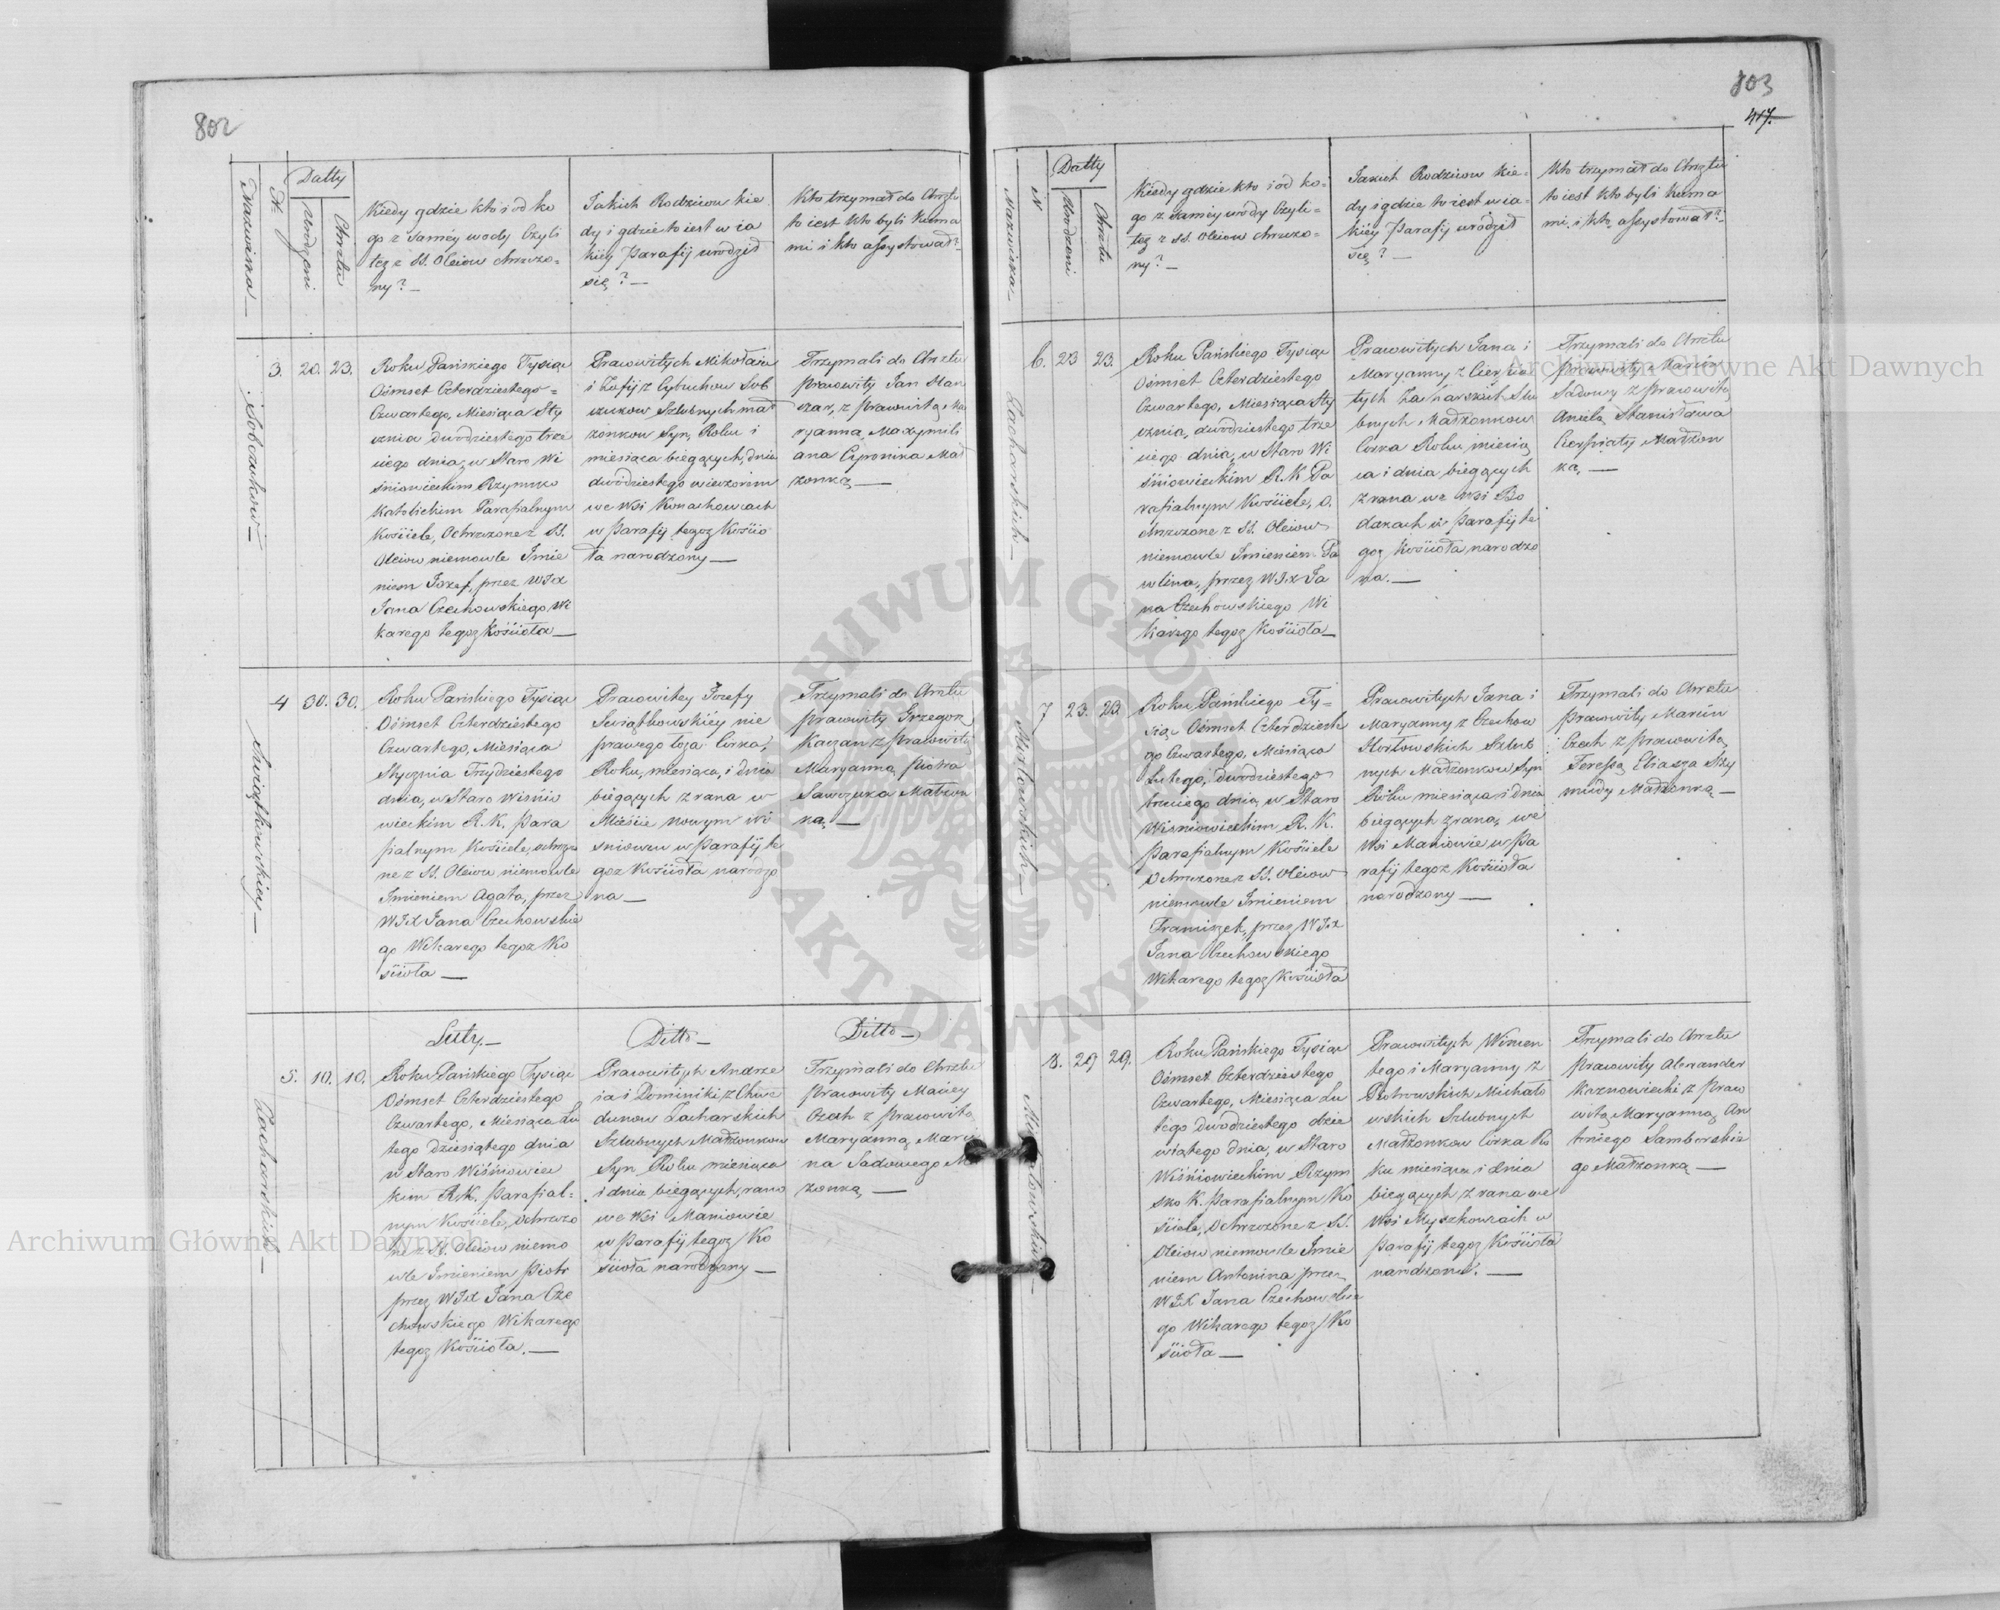 802
Nazwiska
N.
Datty
Urodzeni
Chrztu
Kiedy gdzie kto i od ko
go z samey wody Czyli
też z SS. Oleiow chrzczo-
ny? —
Jakich Rodzicow kie
dy i gdzie to iest w ia
kiéy Parafij urodził
się? —
Kto trzymał do Chrztu
to iest kto byli Kuma
mi i kto assystował?
Sobczukow —
3.
20.
23.
Roku Pańskiego Tysiąc
Ośmset Czterdziestego-
Czwartego, Miesiąca Sty
cznia dwódziestego trze
ciego dnia, w Staro Wi
śniowieckim Rzymsko
Katolickim Parafialnym
Kościele, Ochrzczone z SS.
Oleiow niemowle Imie
niem Jozef, przez WJX
Jana Czechowskiego Wi
karego tegoz Kościoła —
Pracowitych Mikołaia
i Zofij z Cybuchow Sob
czukow Szlubnych mał
zonkow Syn, Roku i
miesiąca biegących, dnia
dwódziestego wieczorem
we Wsi Konachowcach
w Parafij tegoz Kościo
ła narodzony —
Trzymali do Chrztu
Pracowity Jan
z Pracowitą Ma
ryanną, Maxymili
ana Cipronina Mał
zonką —
Swiątkowskiey —
4
30.
30.
Roku Pańskiego Tysiąc
Ośmset Czterdziestego
Czwartego, Miesiąca
Stycznia Trzydziestego
dnia, w Staro Wiśnio
wieckim R. K. Para
fialnym Kościele, ochrzczo
ne z SS. Oleiow niemowle
Imieniem Agata, przez
WJX Jana Czechowskie
go Wikarego tegoz Ko
ścioła —
Pracowitey Jozefy
Swiątkowskiéy nie
prawego łoża Córka,
Roku, miesiąca, i dnia
biegących z rana w
Mieście Nowym Wi
sniowcu w Parafij te
goz Kościoła narodzo
na —
Trzymali do Chrztu
Pracowity Grzegorz
Kaczan z Pracowitą
Maryanną Piotra
Sawczuka Małzon
ną —
Luty. —
Ditto —
Ditto —
Zacharskich —
5.
10.
10.
Roku Pańskiego Tysiąc
Ośmset Czterdziestego
Czwartego, Miesiąca Lu
tego dziesiątego dnia
w Staro Wiśniowiec
kim R.K. Parafial-
nym Kościele, Ochrzczo
ne z SS. Oleiow niemo
wle Imieniem Piotr
przez WJX Jana Cze
chowskiego Wikarego
tegoz Kościoła. —
Pracowitych Andrze
ia i Dominiki z Chwe
dunow Zacharskich
Szlubnych Małzonkow
Syn Roku miesiąca
i dnia biegących, rano
we Wsi Maniowie
w Parafij tegoz Ko
ścioła narodzony —
Trzymali do Chrztu
Pracowity Maciey
Czech z Pracowitą
Maryanną Marci
na Sadowego
zonką —
803
417.
N
Nazwiska —
Datty
Urodzeni
Chrztu
Kiedy gdzie kto i od ko-
go z samey wody Czyli-
też z SS. Oleiow chrzczo-
ny? —
Jakich Rodzicow kie-
dy i gdzie to iest w ia-
kiéy Parafij urodził
się? —
Kto trzymał do Chrztu
to iest kto byli Kuma
mi i kto assystował?
Zacharskich —
6.
23
23.
Roku Pańskiego Tysiąc
Ośmset Czterdziestego
Czwartego, Miesiąca Sty
cznia, dwódziestego trze
ciego dnia, w Staro Wi
śniowieckim R.K. Pa
rafialnym Kościele, o
chrzczone z SS. Oleiow
niemowle Imieniem Pa
wlina, przez WJX Ja
na Czechowskiego Wi
karego tegoz Kościoła —
Pracowitych Jana i
Maryanny z Cierpia
tych Zacharskich Szlu
bnych Małzonkow
Córka Roku miesią
ca i dnia biegących
z rana we Wsi Bo
dakach w Parafij te
goz Kościoła narodzo
na. —
Trzymali do Chrztu
Pracowity Marcin
Sadowy z Pracowitą
Anielą Stanisława
Cierpiaty Małzon
ką, —
7
23.
23.
Roku Pańskiego Ty-
siąc Ośmset Czterdzieste
go Czwartego, Miesiąca
Lutego, dwódziestego
trzeciego dnia, w Staro
Wiśniowieckim R. K.
Parafialnym Kościele
Ochrzczone z SS. Oleiow
niemowle Imieniem
Franciszek, przez WJX
Jana Czechowskiego
Wikarego tegoz Kościoła
Pracowitych Jana i
Maryanny z Czechow
Szlub
nych Małzonkow Syn
Roku miesiąca i dnia
biegących z rana, we
Wsi Maniowie w Pa
rafij tegoz Kościoła
narodzony —
Trzymali do Chrztu
Pracowity Marcin
Czech z Pracowitą
Teressą Eliasza Szy
Małzonką —
8.
29
29.
Roku Pańskiego Tysiąc
Ośmset Czterdziestego
Czwartego, Miesiąca Lu
tego dwódziestego dzie
wiątego dnia, w Staro
Wiśniowieckim Rzym
sko K. Parafialnym Ko
ściele, Ochrzczone z SS.
Oleiow niemowle Imie
niem Antonina przez
WJX Jana Czechowskie
go Wikarego tegoz Ko
ścioła —
Pracowitych Wincen
tego i Maryanny z
Piotrowskich Michało
wskich Szlubnych
Małzonkow Córka Ro
ku miesiąca i dnia
biegących z rana we
Wsi Myszkowcach w
Parafij tegoz Kościoła
narodzona. —
Trzymali do Chrztu
Pracowity Alexander
Kaznowiecki z Praco
witą Maryanną An
toniego Samborskie
go Małzonką —
Archiwum Główne Akt Dawnych
Archiwum Główne Akt Dawnych
ARCHIWUM GŁÓWNE AKT DAWNYCH